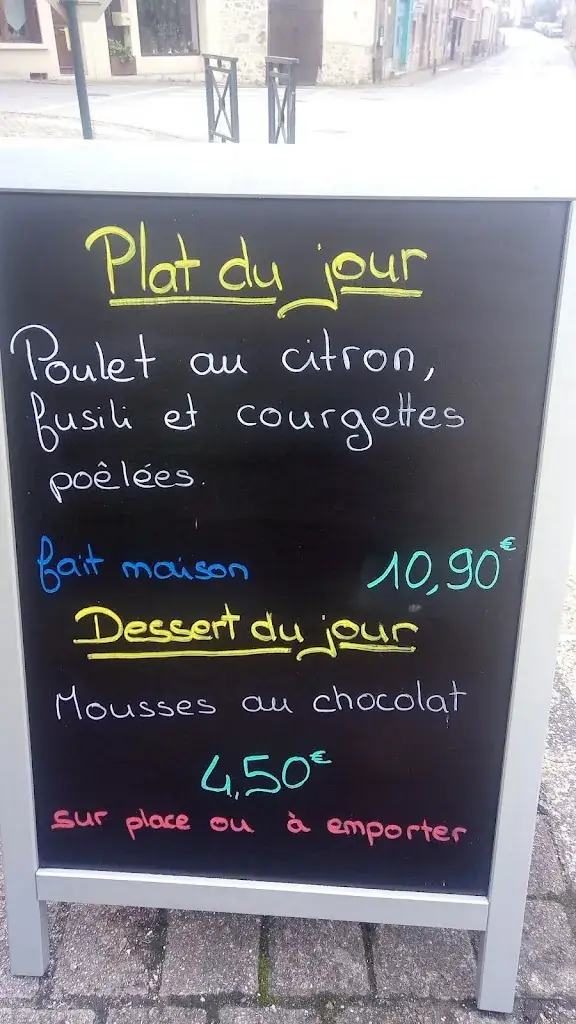 Plat du jour
Poulet au citron,
fusili et courgettes
poêlées.
fait maison 10,90€
Dessert du jour
Mousses au chocolat
4,50€
sur place ou à emporter